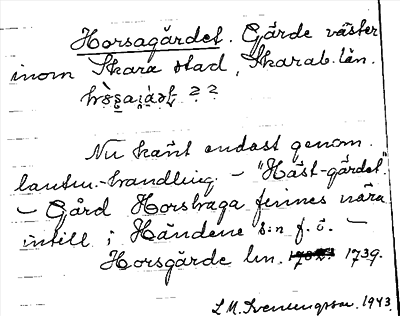 Horsagärdet. Gärde väster
inom Skara stad, Skarab. län.
? ?
Nu känt endast genom
lantm.-handling. – "Häst-gärdet"
– Gård Horshaga finnes nära
intill i Händene s:n f. ö. –
Horsgärde lm. 1739.
1943.